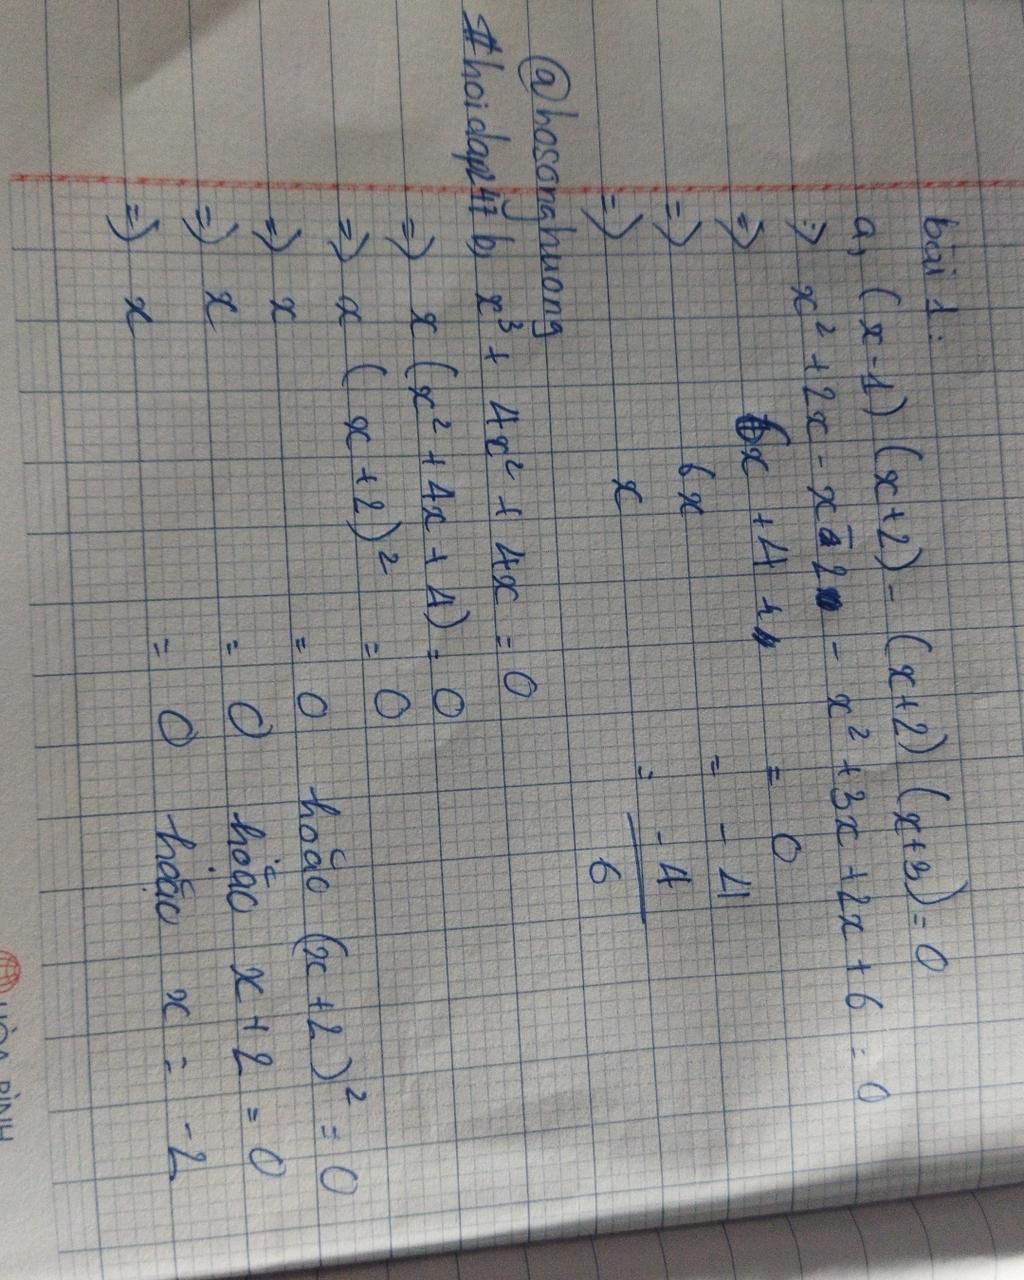 bài 1:
a, (x-1) (x+2) - (x+2) (x+3) = 0
=> x² + 2x - x - 2 - x² + 3x + 2x + 6 = 0
=> 6x + 4 = 0
=> 6x = -4
=> x = -4/6
@hosonghuong
#hoidap247
b, x³ + 4x² + 4x = 0
=> x (x² + 4x + 4) = 0
=> x (x + 2)² = 0
=> x = 0 hoặc (x + 2)² = 0
=> x = 0 hoặc x + 2 = 0
=> x = 0 hoặc x = -2